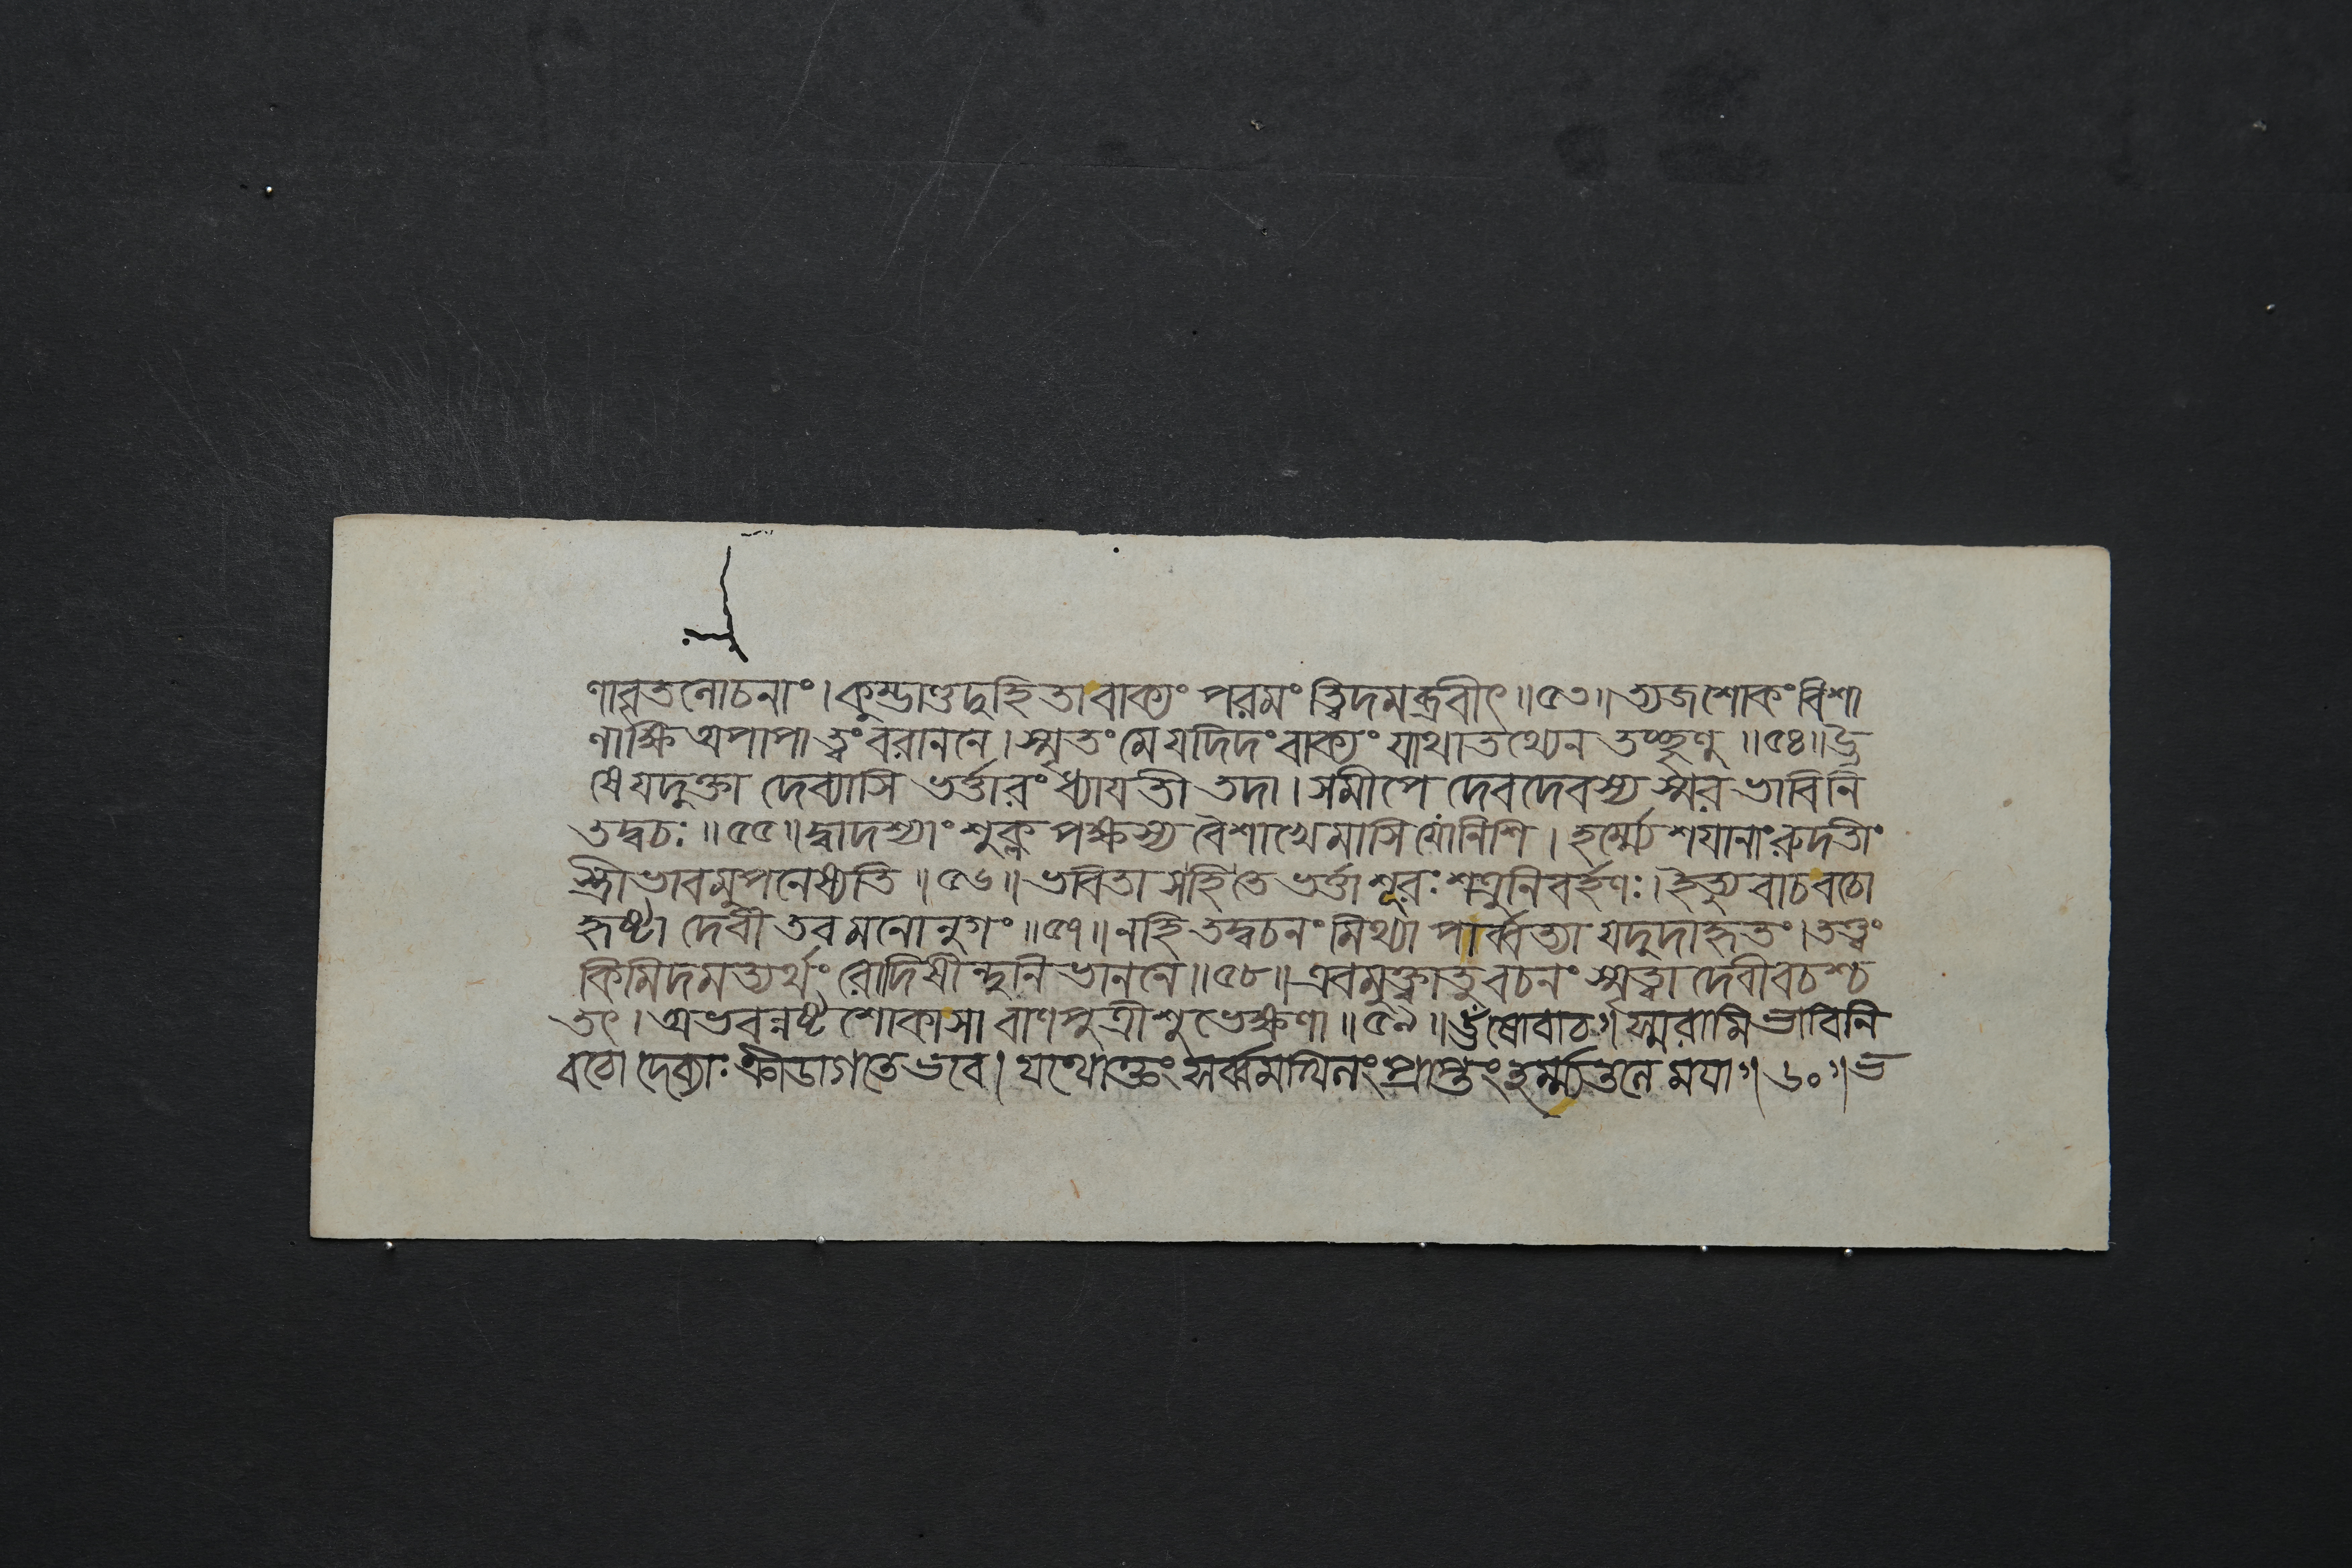 ণাবৃতলোচনাং । কুম্ভাণ্ডদুহিতা বাক্যং পরমং ত্বিদমব্রবীৎ ॥ ৫৩ ॥ ত্যজ শোকং বিশা
লাক্ষি অপাপা ত্বং বরাননে । স্মৃতং মে যদিদং বাক্যং যাথাতথ্যেন তচ্ছৃণু ॥ ৫৪ ॥
ষে যদুক্তা দেব্যাসি ভর্ত্তারং ধ্যাযতী তদা । সমীপে দেবদেবস্য স্মর ভাবিনি
তদ্বচঃ ॥ ৫৫ ॥ দ্বাদশ্যাং শুক্লপক্ষস্য বৈশাখে মাসি যো নিশি । হর্ম্ম্যে শযানাং রুদতীং
স্ত্রীভাবমুপনেষ্যতি ॥ ৫৬ ॥ ভবিতা স হি তে ভর্ত্তা শূরঃ শত্রুনিবর্হণঃ । ইত্যুবাচ বচো
হৃষ্টা দেবী তব মনোনুগং ॥ ৫৭ ॥ ন হি তদ্বচনং মিথ্যা পার্ব্বত্যা যদুদাহৃতং । তত্ত্বং
কিমিদমত্যর্থং রোদিষীন্দুনিভাননে ॥ ৫৮ ॥ এবমুক্ত্বা তু বচনং স্মৃত্বা দেবীবচশ্চ
তৎ । অভবন্নষ্টশোকা সা বাণপুত্রী শুভেক্ষণা ॥ ৫৯ ॥ ঊষোবাচ । স্মরামি ভাবিনি
বচো দেব্যাঃ ক্রীডাগতে ভবে । যথোক্তং সর্ব্বমখিলং প্রাপ্তং হর্ম্ম্যতলে মযা ॥ ৬০ ॥ ভ